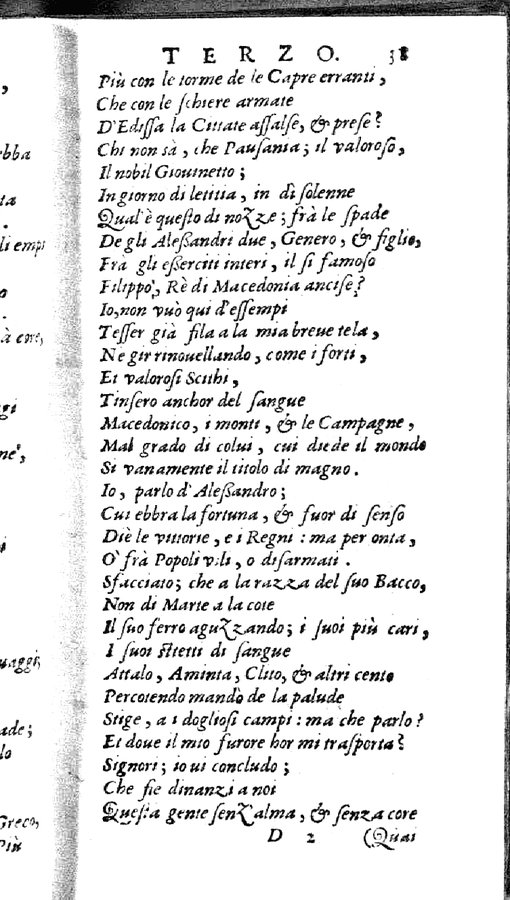 TERZO. 38
Più con le torme de le Capre erranti,
Che con le schiere armate
D'Edissa la Cittate assalse, & prese?
Chi non sà, che Pausania; il valoroso,
Il nobil Giouinetto;
In giorno di letitia, in dì solenne
Qual'è questo di nozze; frà le spade
De gli Alessandri due, Genero, & figlio,
Frà gli esserciti interi, il sì famoso
Filippo, Rè di Macedonia ancise?
Io, non vuò qui d'essempi
Tesser già fila a la mia breue tela,
Ne gir rinouellando, come i forti,
Et valorosi Scithi,
Tinsero anchor del sangue
Macedonico, i monti, & le Campagne,
Mal grado di colui, cui diede il mondo
Sì vanamente il titolo di magno.
Io, parlo d'Alessandro;
Cui ebbra la fortuna, & fuor di senso
Diè le vittorie, e i Regni: ma per onta,
O' frà Popoli vili, o disarmati.
Sfacciato; che a la razza del suo Bacco,
Non di Marte a la cote
Il suo ferro aguzzando; i suoi più cari,
I suoi stretti di sangue
Attalo, Aminta, Clito, & altri cento
Percotendo mandò de la palude
Stige, a i dogliosi campi: ma che parlo?
Et doue il mio furore hor mi trasporta?
Signori; io ui concludo;
Che sie dinanzi a noi
Questa gente senz'alma, & senza core
D 2 (Quai
,
ebba
ta
.
li empi
o
à core,
gi
me',
i
uaggi,
ade;
lo
Greco,
Più